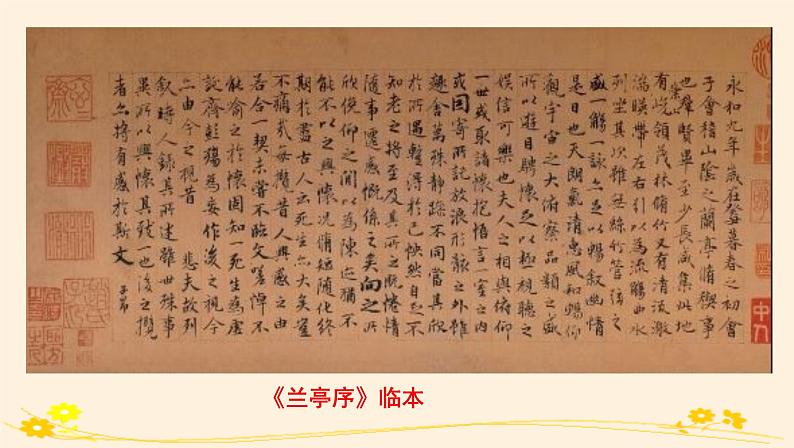 永和九年歲在癸丑暮春之初會
于會稽山陰之蘭亭脩稧事
也群賢畢至少長咸集此地
有崇山峻領茂林脩竹又有清流激
湍暎帶左右引以為流觴曲水
列坐其次雖無絲竹管絃之
盛一觴一詠亦足以暢叙幽情
是日也天朗氣清惠風和暢仰
觀宇宙之大俯察品類之盛
所以遊目騁懷足以極視聽之
娛信可樂也夫人之相與俯仰
一世或取諸懷抱悟言一室之內
或因寄所託放浪形骸之外雖
趣舍萬殊静躁不同當其欣
於所遇蹔得於己怏然自足不
知老之將至及其所之既惓情
隨事遷感慨係之矣向之所
欣俛仰之閒以為陳迹猶不
能不以之興懷況脩短隨化終
期於盡古人云死生亦大矣豈
不痛哉每攬昔人興感之由
若合一契未嘗不臨文嗟悼不
能喻之於懷固知一死生為虛
誕齊彭殤為妄作後之視今
亦由今之視昔 悲夫故列
叙時人錄其所述雖世殊事
異所以興懷其致一也後之攬
者亦將有感於斯文
子昂
《兰亭序》临本